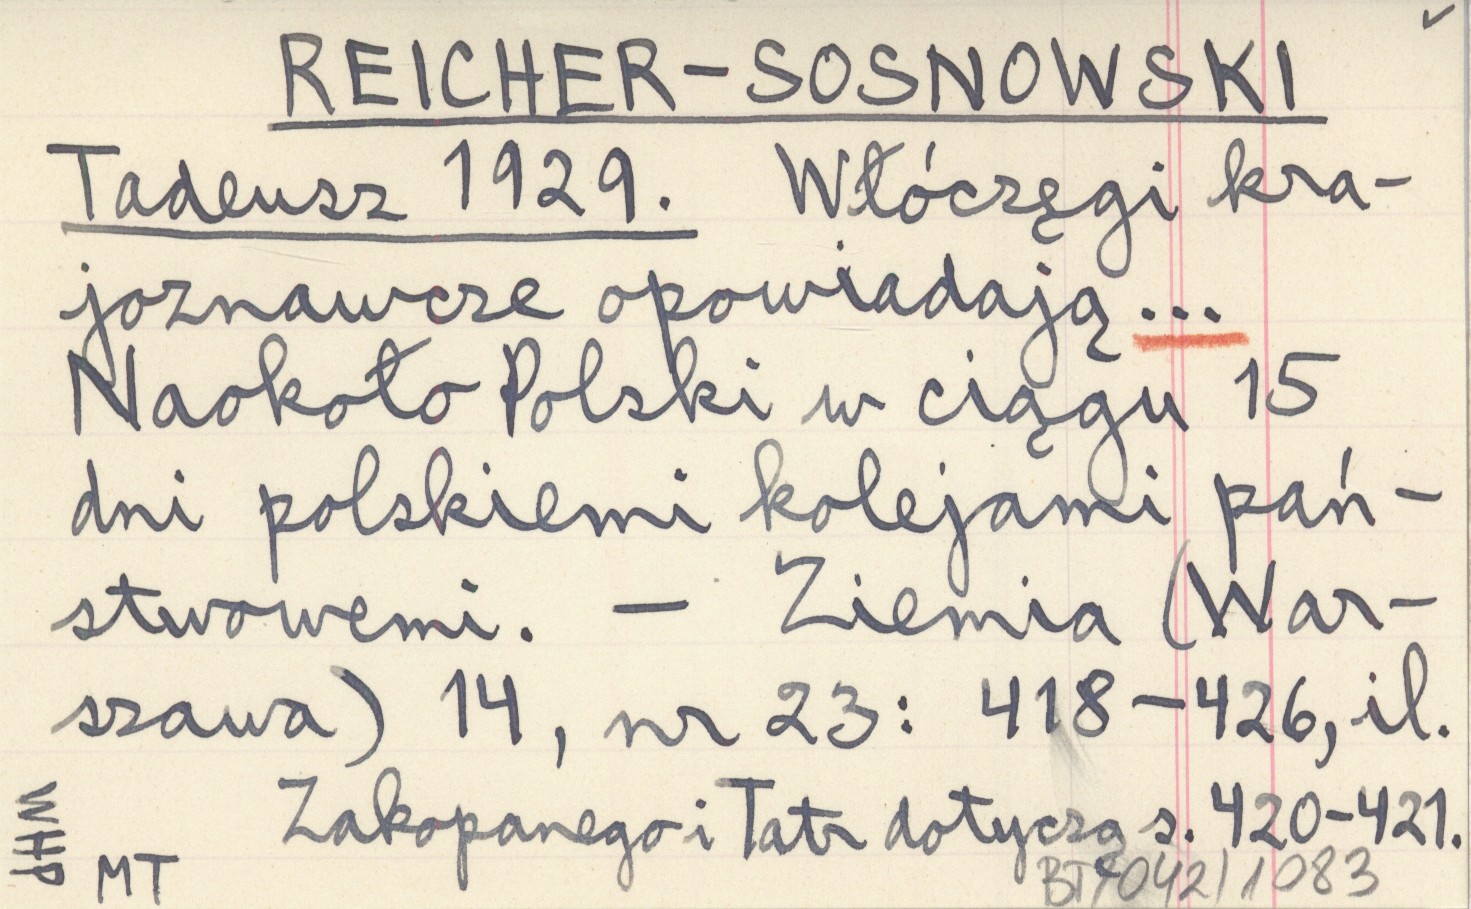 REICHER-SOSNOWSKI
Tadeusz 1929. Włóczęgi kra-
joznawcze opowiadają...
Naokoło Polski w ciągu 15
dni polskiemi kolejami pań-
stwowemi. — Ziemia (War-
szawa) 14, nr 23: 418-426, il.
Zakopanego i Tatr dotyczą s. 420-421.
WHP
MT
BT/042/1083